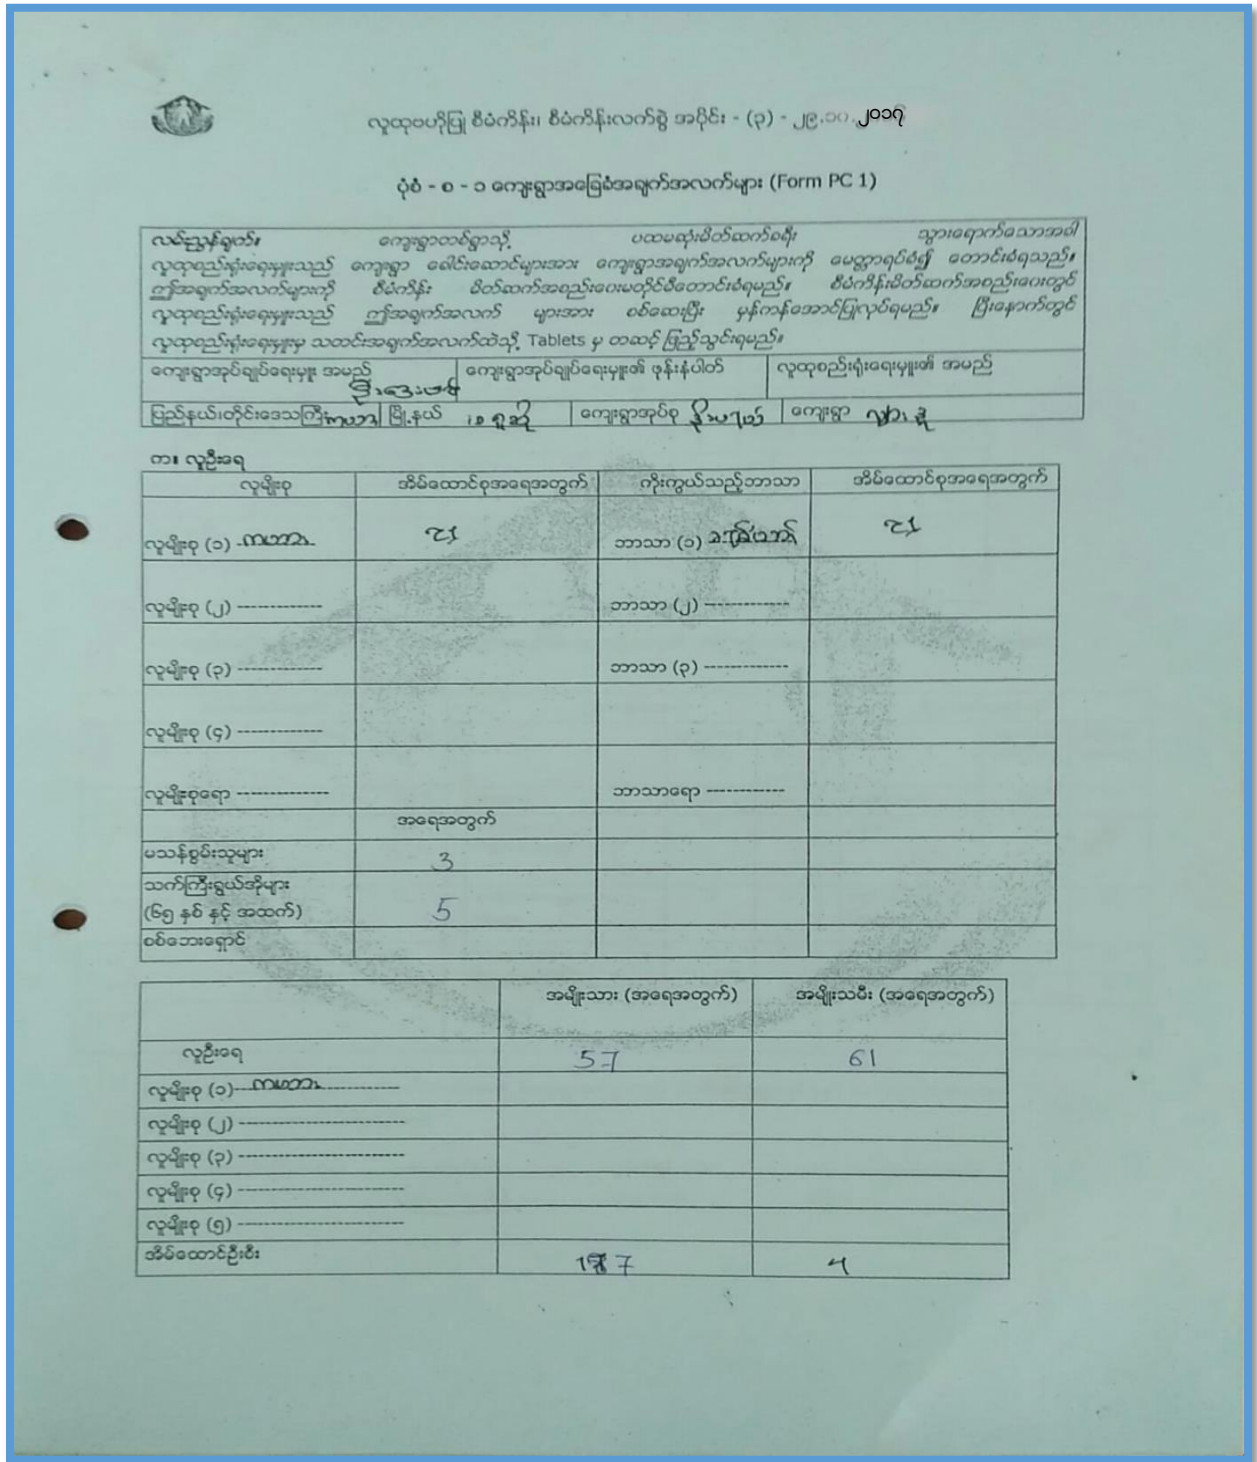 လူထုဗဟိုပြု စီမံကိန်း၊ စီမံကိန်းလက်စွဲ အပိုင်း - (၃) - ၂၉.၁၀.၂၀၁၇
ပုံစံ - စ - ၁ ကျေးရွာအခြေခံအချက်အလက်များ (Form PC 1)
လမ်းညွှန်ချက်။ ကျေးရွာတစ်ရွာသို့ ပထမဆုံးမိတ်ဆက်ခရီး သွားရောက်သောအခါ
လူထုစည်းရုံးရေးမှူးသည် ကျေးရွာ ခေါင်းဆောင်များအား ကျေးရွာအချက်အလက်များကို မေတ္တာရပ်ခံ၍ တောင်းခံရသည်။
ဤအချက်အလက်များကို စီမံကိန်း မိတ်ဆက်အစည်းဝေးမတိုင်မီတောင်းခံရမည်။ စီမံကိန်းမိတ်ဆက်အစည်းဝေးတွင်
လူထုစည်းရုံးရေးမှူးသည် ဤအချက်အလက် များအား စစ်ဆေးပြီး မှန်ကန်အောင်ပြုလုပ်ရမည်။ ပြီးနောက်တွင်
လူထုစည်းရုံးရေးမှူးမှ သတင်းအချက်အလက်ထဲသို့ Tablets မှ တဆင့် ဖြည့်သွင်းရမည်။
ကျေးရွာအုပ်ချုပ်ရေးမှူး အမည် ကျေးရွာအုပ်ချုပ်ရေးမှူး၏ ဖုန်းနံပါတ် လူထုစည်းရုံးရေးမှူး၏ အမည်
ပြည်နယ်၊တိုင်းဒေသကြီး ကယား မြို့နယ် ဖရူဆို ကျေးရွာအုပ်စု ကျေးရွာ
က။ လူဦးရေ
လူမျိုးစု အိမ်ထောင်စုအရေအတွက် ကိုးကွယ်သည့်ဘာသာ အိမ်ထောင်စုအရေအတွက်
လူမျိုးစု (၁) ကယား ၎၁ ဘာသာ (၁) ခရစ်ယာန် ၎၁
လူမျိုးစု (၂) ------------- ဘာသာ (၂) -------------
လူမျိုးစု (၃) ------------- ဘာသာ (၃) -------------
လူမျိုးစု (၄) -------------
လူမျိုးစုရော -------------- ဘာသာရော ------------
အရေအတွက်
မသန်စွမ်းသူများ 3
သက်ကြီးရွယ်အိုများ
(၆၅ နှစ် နှင့် အထက်) 5
စစ်ဘေးရှောင်
အမျိုးသား (အရေအတွက်) အမျိုးသမီး (အရေအတွက်)
လူဦးရေ 57 61
လူမျိုးစု (၁) ကယား
လူမျိုးစု (၂) -------------------------
လူမျိုးစု (၃) -------------------------
လူမျိုးစု (၄) -------------------------
လူမျိုးစု (၅) -------------------------
အိမ်ထောင်ဦးစီး 17 4